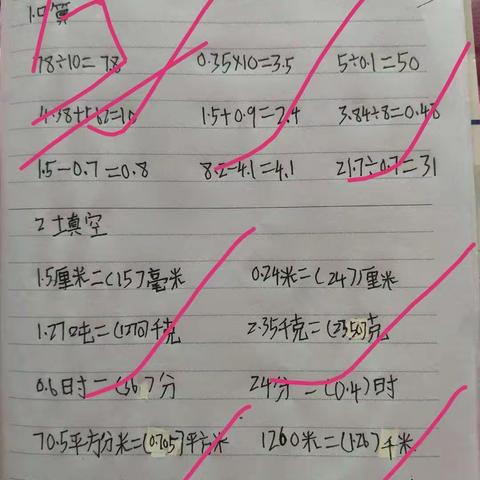 1.口算
78÷10=7.8 0.35×10=3.5 5÷0.1=50
4.38+5.62=10 1.5+0.9=2.4 3.84÷8=0.48
1.5-0.7=0.8 8.2-4.1=4.1 21.7÷0.7=31
2 填空
1.5厘米=(15)毫米 0.24米=(24)厘米
1.270吨=(1270)千克 2.35千克=(2350)克
0.6日寸=(36)分 24分=(0.4)日寸
70.5平方分米=(0.705)平方米 1260米=(1.26)千米